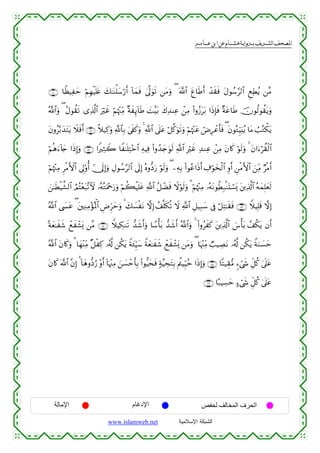 المصحف الشريف برواية هشام عن ابن عامر
مَّن يُطِعِ ٱلرَّسُولَ فَقَدْ أَطَاعَ ٱللَّهَ ۖ وَمَن تَوَلَّىٰ فَمَآ أَرْسَلْنَٰكَ عَلَيْهِمْ حَفِيظًا
وَيَقُولُونَ طَاعَةٌ فَإِذَا بَرَزُوا۟ مِنْ عِندِكَ بَيَّتَ طَآئِفَةٌ مِّنْهُمْ غَيْرَ ٱلَّذِى تَقُولُ ۖ وَٱللَّهُ
يَكْتُبُ مَا يُبَيِّتُونَ ۖ فَأَعْرِضْ عَنْهُمْ وَتَوَكَّلْ عَلَى ٱللَّهِ ۚ وَكَفَىٰ بِٱللَّهِ وَكِيلًا أَفَلَا يَتَدَبَّرُونَ
ٱلْقُرْءَانَ ۚ وَلَوْ كَانَ مِنْ عِندِ غَيْرِ ٱللَّهِ لَوَجَدُوا۟ فِيهِ ٱخْتِلَٰفًا كَثِيرًا وَإِذَا جَآءَهُمْ
أَمْرٌ مِّنَ ٱلْأَمْنِ أَوِ ٱلْخَوْفِ أَذَاعُوا۟ بِهِۦ ۖ وَلَوْ رَدُّوهُ إِلَى ٱلرَّسُولِ وَإِلَىٰٓ أُو۟لِى ٱلْأَمْرِ مِنْهُمْ
لَعَلِمَهُ ٱلَّذِينَ يَسْتَنۢبِطُونَهُۥ مِنْهُمْ ۗ وَلَوْلَا فَضْلُ ٱللَّهِ عَلَيْكُمْ وَرَحْمَتُهُۥ لَٱتَّبَعْتُمُ ٱلشَّيْطَٰنَ
إِلَّا قَلِيلًا فَقَٰتِلْ فِى سَبِيلِ ٱللَّهِ لَا تُكَلَّفُ إِلَّا نَفْسَكَ ۚ وَحَرِّضِ ٱلْمُؤْمِنِينَ ۖ عَسَى ٱللَّهُ
أَن يَكُفَّ بَأْسَ ٱلَّذِينَ كَفَرُوا۟ ۚ وَٱللَّهُ أَشَدُّ بَأْسًا وَأَشَدُّ تَنكِيلًا مَّن يَشْفَعْ شَفَٰعَةً
حَسَنَةً يَكُن لَّهُۥ نَصِيبٌ مِّنْهَا ۖ وَمَن يَشْفَعْ شَفَٰعَةً سَيِّئَةً يَكُن لَّهُۥ كِفْلٌ مِّنْهَا ۗ وَكَانَ ٱللَّهُ
عَلَىٰ كُلِّ شَىْءٍ مُّقِيتًا وَإِذَا حُيِّيتُم بِتَحِيَّةٍ فَحَيُّوا۟ بِأَحْسَنَ مِنْهَآ أَوْ رُدُّوهَآ ۗ إِنَّ ٱللَّهَ كَانَ
عَلَىٰ كُلِّ شَىْءٍ حَسِيبًا
الحرف المخالف لحفص الإدغام الإمالة
www.islamweb.net الشبكة الإسلامية